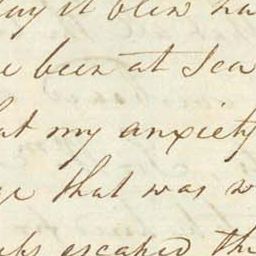 day it blew ha
e been at Sea
at my anxiety
e that was w
escaped th